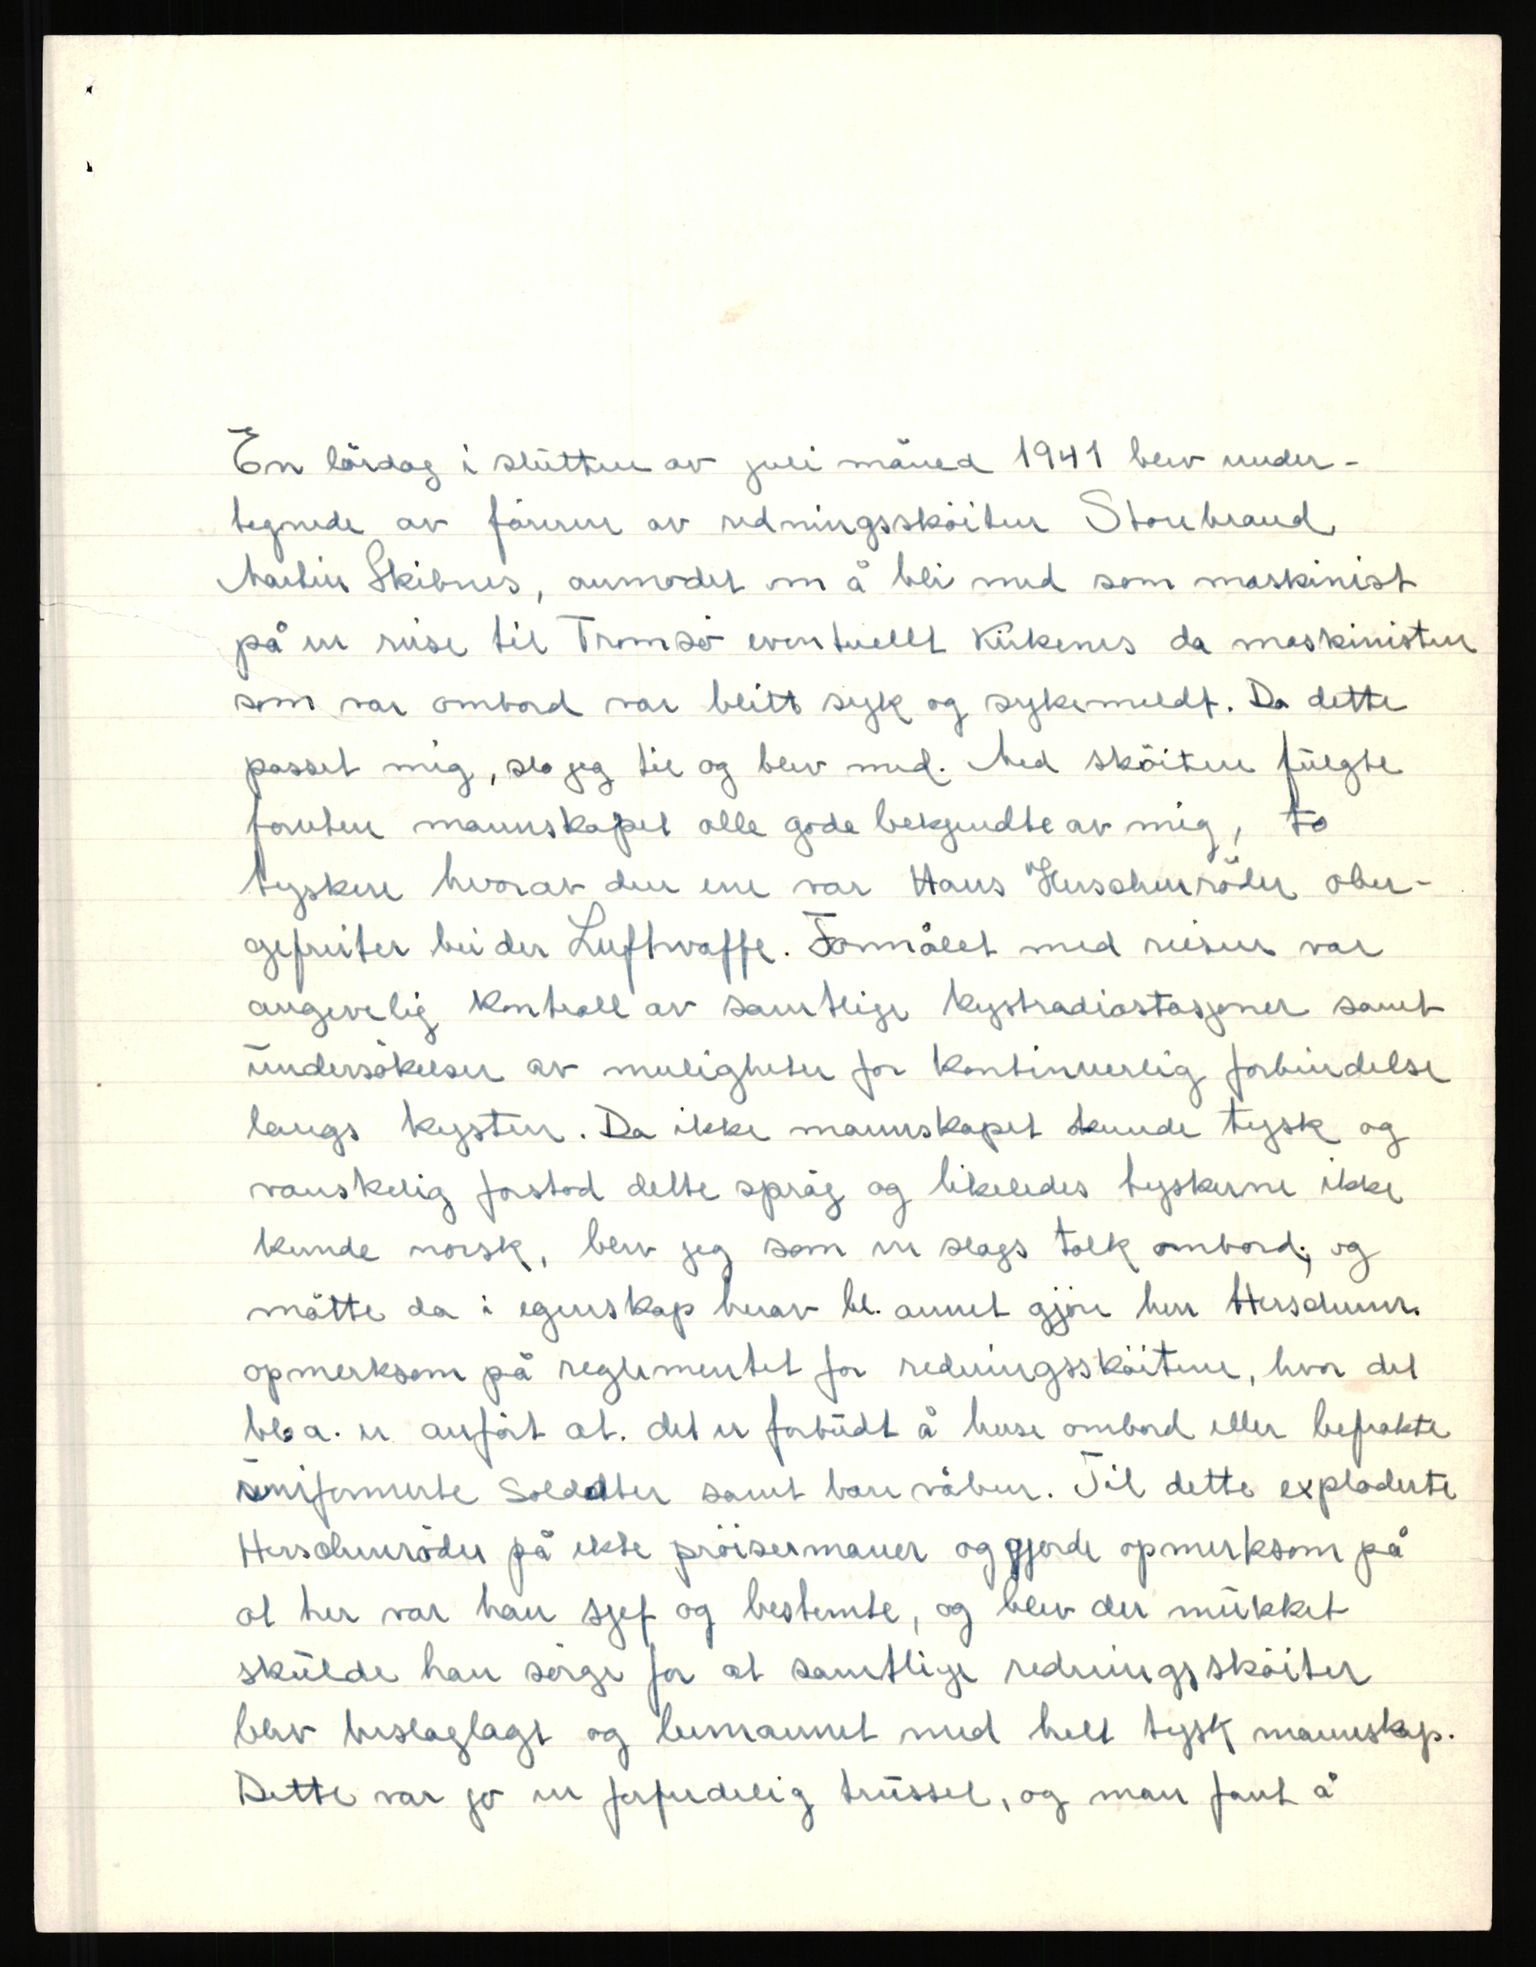 En lördag i slutten av juli måned 1941 blev under-
tegnede av föreren av redningssköiten Storebrand
Martin Skibnes, anmodet om å bli med som maskinist
på en reise til Tromsö eventuellt Kirkenes da maskinisten
som var ombord var blitt syk og sykemeldt. Da dette
passet mig, slo jeg til og blev med. Med sköiten fulgte
foruten mannskapet alle gode bekjendte av mig, to
tyskere hvorav den ene var Hans Herschenröder ober-
gefreiter bei der Luftwaffe. Formålet med reisen var
angivelig kontroll av samtlige kystradiostasjoner samt
undersökelser av muligheter for kontinuerlig forbindelse
langs kysten. Da ikke mannskapet kunde tysk og
vanskelig forstod dette språg og likeledes tyskerne ikke
kunde norsk, blev jeg som en slags tolk ombord, og
måtte da i egenskap herav bl. annet gjöre herr Herschenr.
opmerksom på reglementet for redningssköitene, hvor det
bl. a. er anfört at. det er forbudt å huse ombord eller befrakte
uniformerte soldater samt bare våben. Til dette exploderte
Herschenröder på ekte pröisermaner og gjorde opmerksom på
at her var han sjef og bestemte, og blev der mukket
skulde han sörge for at samtlige redningssköiter
blev beslaglagt og bemannet med helt tysk mannskap.
Dette var jo en forferdelig trussel, og man fant å